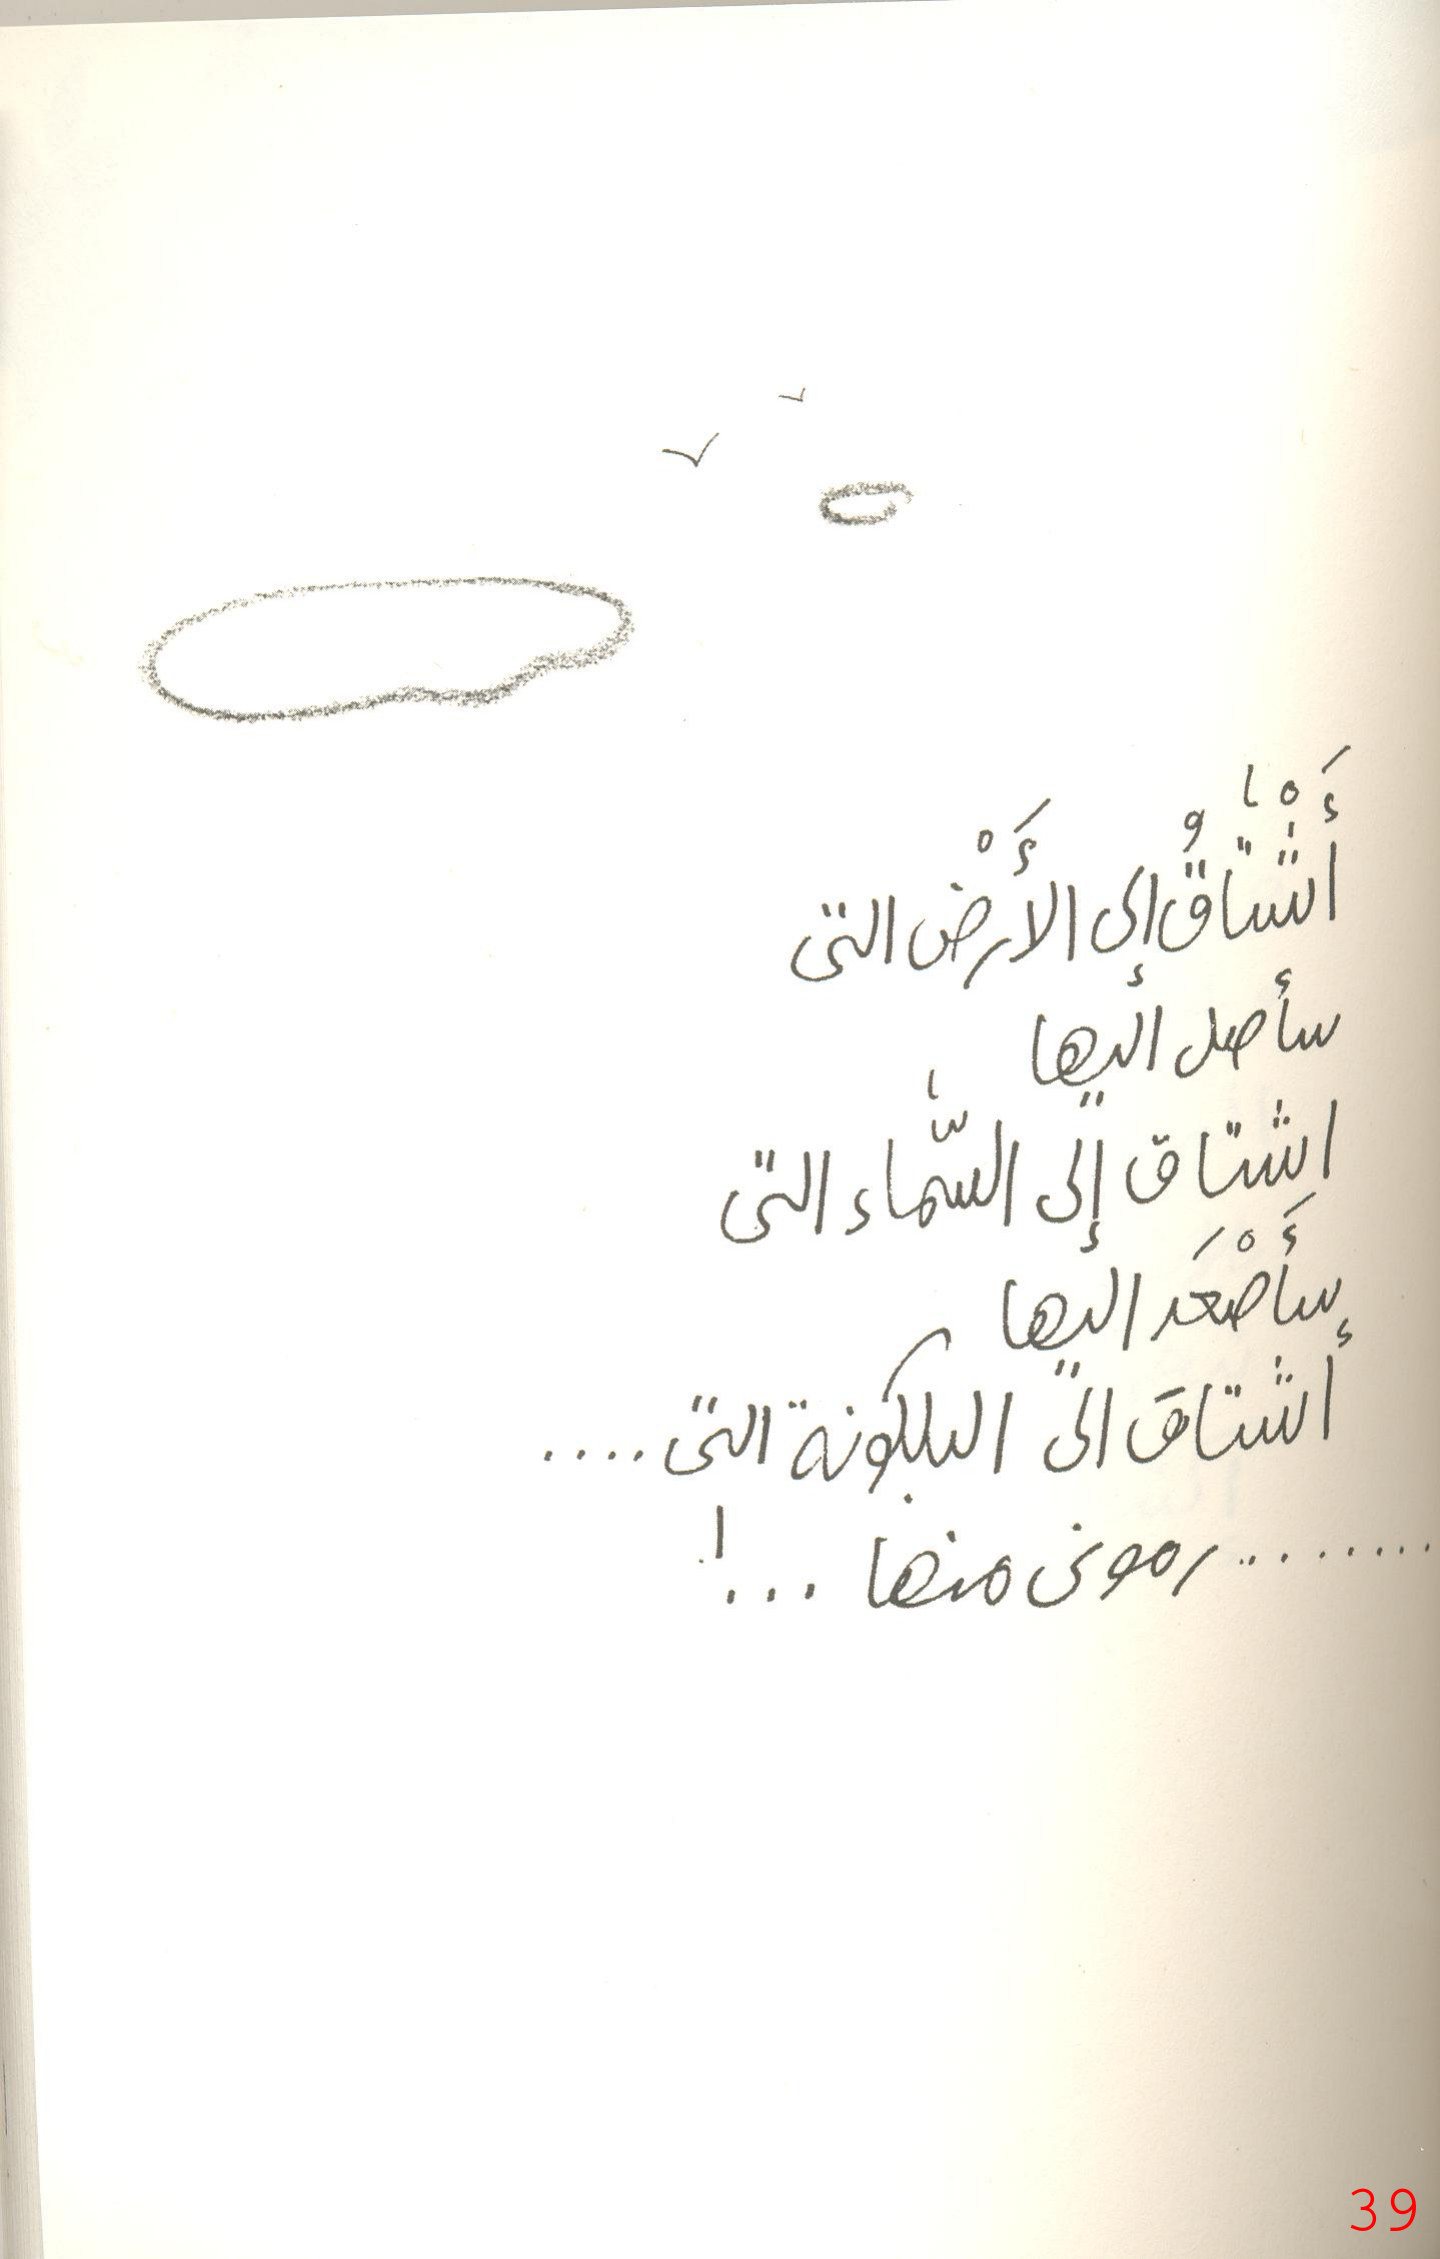 أَشْتاقُ إلى الأَرْض التى
سأصل اليها
اشتاق إلى السّماء التى
سأَصْعَد اليها
أشتاق الى البلكونة التى ....
........ رمونى منها ...!
39